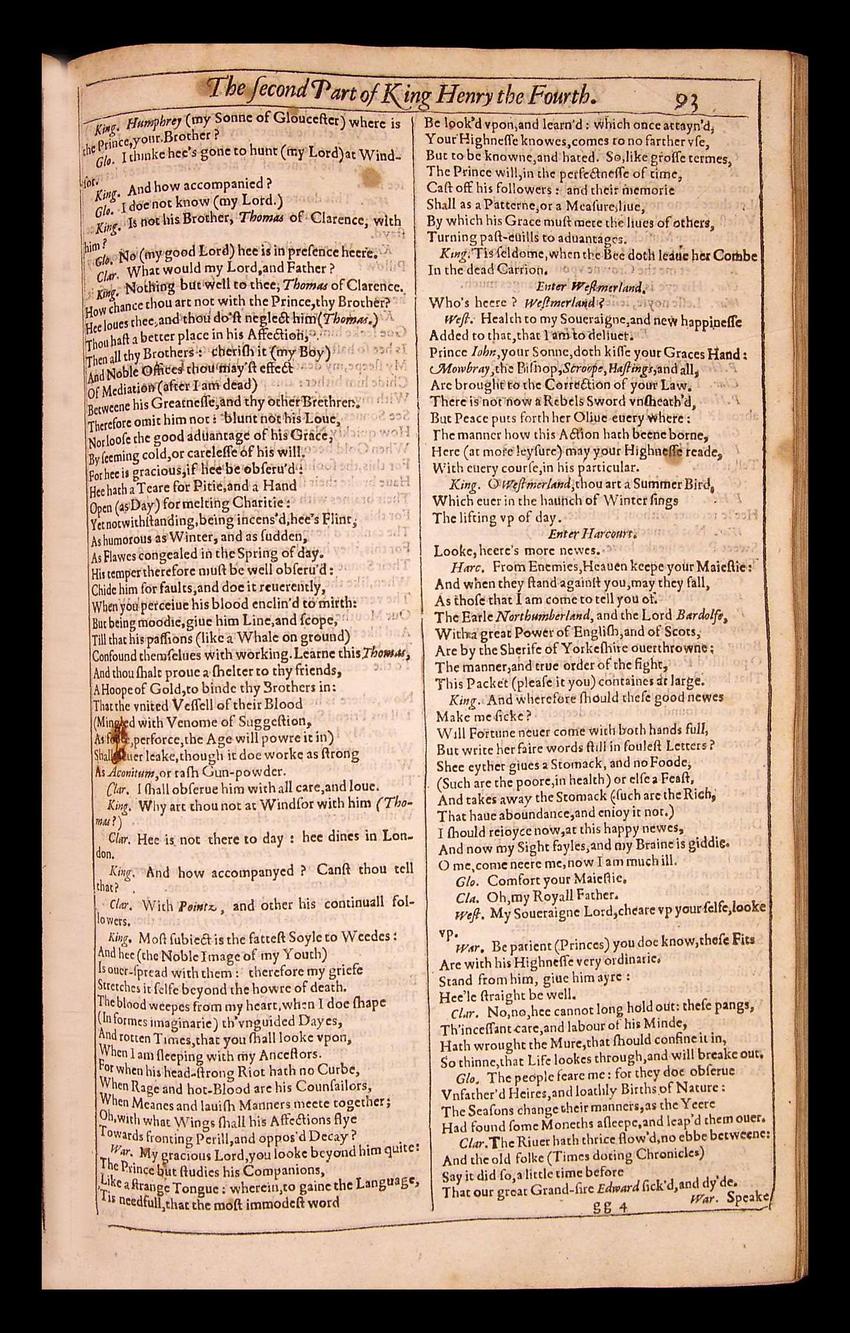 The ſecond Part of King Henry the Fourth. 93
King. Humphrey (my Sonne of Glouceſter) where is
the Prince, your Brother?
Glo. I thinke hee's gone to hunt (my Lord) at Wind-
ſor.
King. And how accompanied?
Glo. I doe not know (my Lord.)
King. Is not his Brother, Thomas of Clarence, with
him?
Glo. No (my good Lord) hee is in preſence heere.
Clar. What would my Lord, and Father?
King. Nothing but well to thee, Thomas of Clarence.
How chance thou art not with the Prince, thy Brother?
Hee loues thee, and thou do'ſt neglect him (Thomas.)
Thou haſt a better place in his Affection,
Then all thy Brothers: cheriſh it (my Boy)
And Noble Offices thou may'ſt effect
Of Mediation (after I am dead)
Betweene his Greatneſſe, and thy other Brethren.
Therefore omit him not: blunt not his Loue,
Nor looſe the good aduantage of his Grace,
By ſeeming cold, or careleſſe of his will.
For hee is gracious, if hee be obſeru'd:
Hee hath a Teare for Pitie, and a Hand
Open (as Day) for melting Charitie:
Yet notwithſtanding, being incens'd, hee's Flint,
As humorous as Winter, and as ſudden,
As Flawes congealed in the Spring of day.
His temper therefore muſt be well obſeru'd:
Chide him for faults, and doe it reuerently,
When you perceiue his blood enclin'd to mirth:
But being moodie, giue him Line, and ſcope,
Till that his paſſions (like a Whale on ground)
Confound themſelues with working. Learne this Thomas,
And thou ſhalt proue a ſhelter to thy friends,
A Hoope of Gold, to binde thy Brothers in:
That the vnited Veſſell of their Blood
(Mingled with Venome of Suggeſtion,
As force, perforce, the Age will powre it in)
Shall neuer leake, though it doe worke as ſtrong
As Aconitum, or raſh Gun-powder.
Clar. I ſhall obſerue him with all care, and loue.
King. Why art thou not at Windſor with him (Tho-
mas?)
Clar. Hee is not there to day: hee dines in Lon-
don.
King. And how accompanyed? Canſt thou tell
that?
Clar. With Pointz, and other his continuall fol-
lowers.
King. Moſt ſubiect is the fatteſt Soyle to Weedes:
And hee (the Noble Image of my Youth)
Is ouer-ſpread with them: therefore my griefe
Stretches it ſelfe beyond the howre of death.
The blood weepes from my heart, when I doe ſhape
(In formes imaginarie) th'vnguided Dayes,
And rotten Times, that you ſhall looke vpon,
When I am ſleeping with my Anceſtors.
For when his head-ſtrong Riot hath no Curbe,
When Rage and hot-Blood are his Counſailors,
When Meanes and lauiſh Manners meete together;
Oh, with what Wings ſhall his Affections flye
Towards fronting Perill, and oppos'd Decay?
War. My gracious Lord, you looke beyond him quite:
The Prince but ſtudies his Companions,
Like a ſtrange Tongue: wherein, to gaine the Language,
'Tis needfull, that the moſt immodeſt word
Be look'd vpon, and learn'd: which once attayn'd,
Your Highneſſe knowes, comes to no farther vſe,
But to be knowne, and hated. So, like groſſe termes,
The Prince will, in the perfectneſſe of time,
Caſt off his followers: and their memorie
Shall as a Patterne, or a Meaſure, liue,
By which his Grace muſt mete the liues of others,
Turning paſt-euills to aduantages.
King. 'Tis ſeldome, when the Bee doth leaue her Combe
In the dead Carrion.
Enter Weſtmerland.
Who's heere? Weſtmerland?
Weſt. Health to my Soueraigne, and new happineſſe
Added to that, that I am to deliuer.
Prince Iohn, your Sonne, doth kiſſe your Graces Hand:
Mowbray, the Biſhop, Scroope, Haſtings, and all,
Are brought to the Correction of your Law.
There is not now a Rebels Sword vnſheath'd,
But Peace puts forth her Oliue euery where:
The manner how this Action hath beene borne,
Here (at more leyſure) may your Highneſſe reade,
With euery courſe, in his particular.
King. O Weſtmerland, thou art a Summer Bird,
Which euer in the haunch of Winter ſings
The lifting vp of day.
Enter Harcourt.
Looke, heere's more newes.
Harc. From Enemies, Heauen keepe your Maieſtie:
And when they ſtand againſt you, may they fall,
As thoſe that I am come to tell you of.
The Earle Northumberland, and the Lord Bardolfe,
With a great Power of Engliſh, and of Scots,
Are by the Sherife of Yorkeſhire ouerthrowne:
The manner, and true order of the fight,
This Packet (pleaſe it you) containes at large.
King. And wherefore ſhould theſe good newes
Make me ſicke?
Will Fortune neuer come with both hands full,
But write her faire words ſtill in fouleſt Letters?
Shee eyther giues a Stomack, and no Foode,
(Such are the poore, in health) or elſe a Feaſt,
And takes away the Stomack (ſuch are the Rich,
That haue aboundance, and enioy it not.)
I ſhould reioyce now, at this happy newes,
And now my Sight fayles, and my Braine is giddie.
O me, come neere me, now I am much ill.
Glo. Comfort your Maieſtie.
Cla. Oh, my Royall Father.
Weſt. My Soueraigne Lord, cheare vp your ſelfe, looke
vp.
War. Be patient (Princes) you doe know, theſe Fits
Are with his Highneſſe very ordinarie.
Stand from him, giue him ayre:
Hee'le ſtraight be well.
Clar. No, no, hee cannot long hold out: theſe pangs,
Th'inceſſant care, and labour of his Minde,
Hath wrought the Mure, that ſhould confine it in,
So thinne, that Life lookes through, and will breake out.
Glo. The people feare me: for they doe obſerue
Vnfather'd Heires, and loathly Births of Nature:
The Seaſons change their manners, as the Yeere
Had found ſome Moneths aſleepe, and leap'd them ouer.
Clar. The Riuer hath thrice flow'd, no ebbe betweene:
And the old folke (Times doting Chronicles)
Say it did ſo, a little time before
That our great Grand-ſire Edward ſick'd, and dy'de.
War. Speake
gg 4